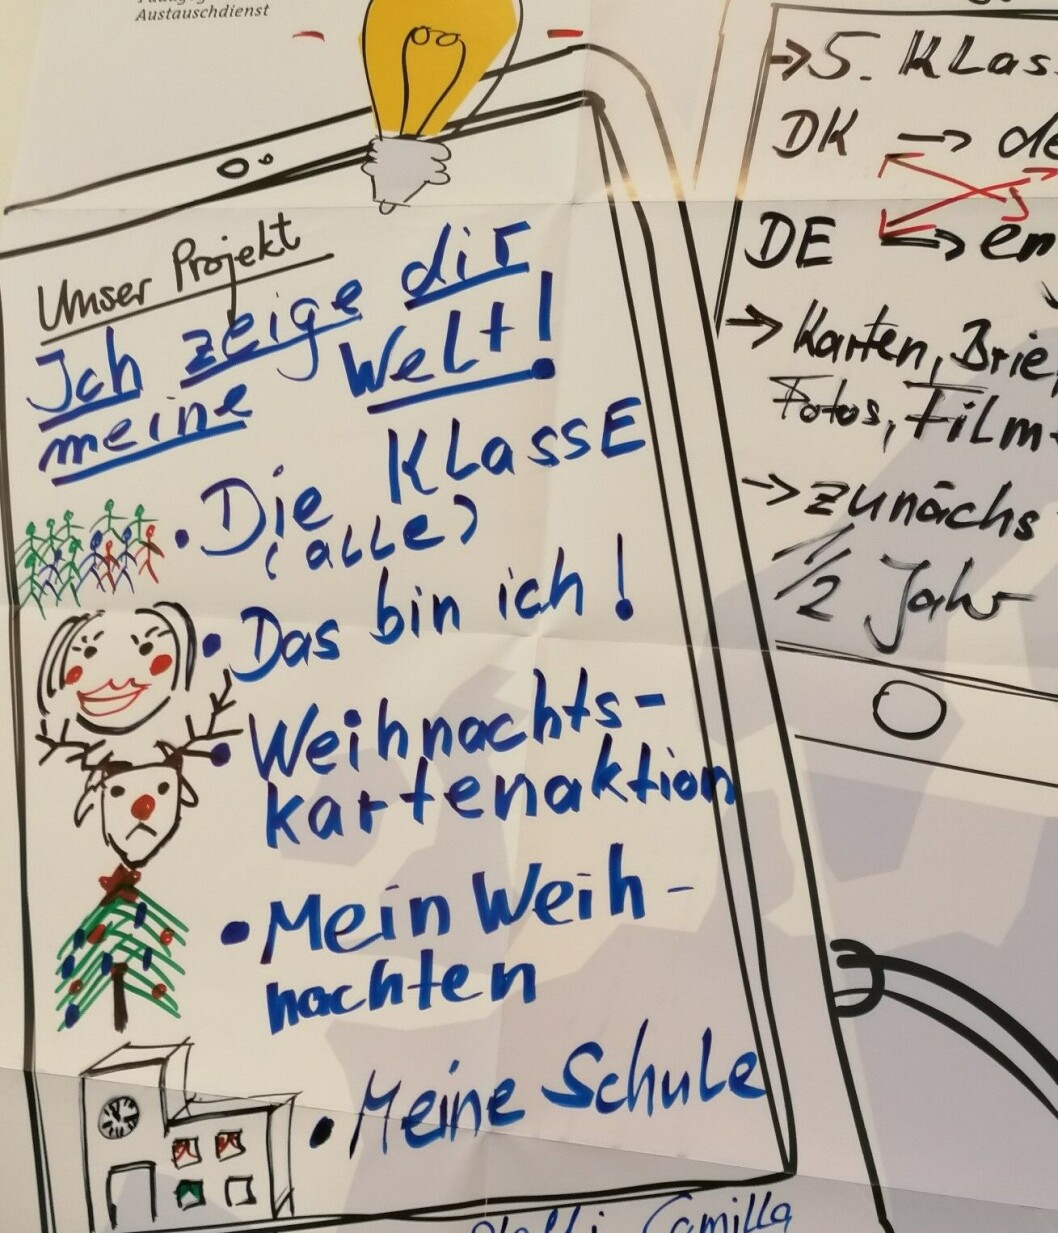 Austauschdienst
Unser Projekt
Ich zeige dir
meine Welt!
Die KLassE
(alle)
Das bin ich!
Weihnachts-
kartenaktion
Mein Weih-
nachten
Meine Schule
Camilla
→ 5. KLas
DK →
DE
→ Karten, Brie
Fotos, Film
→ zunächs
1/2 Jahr